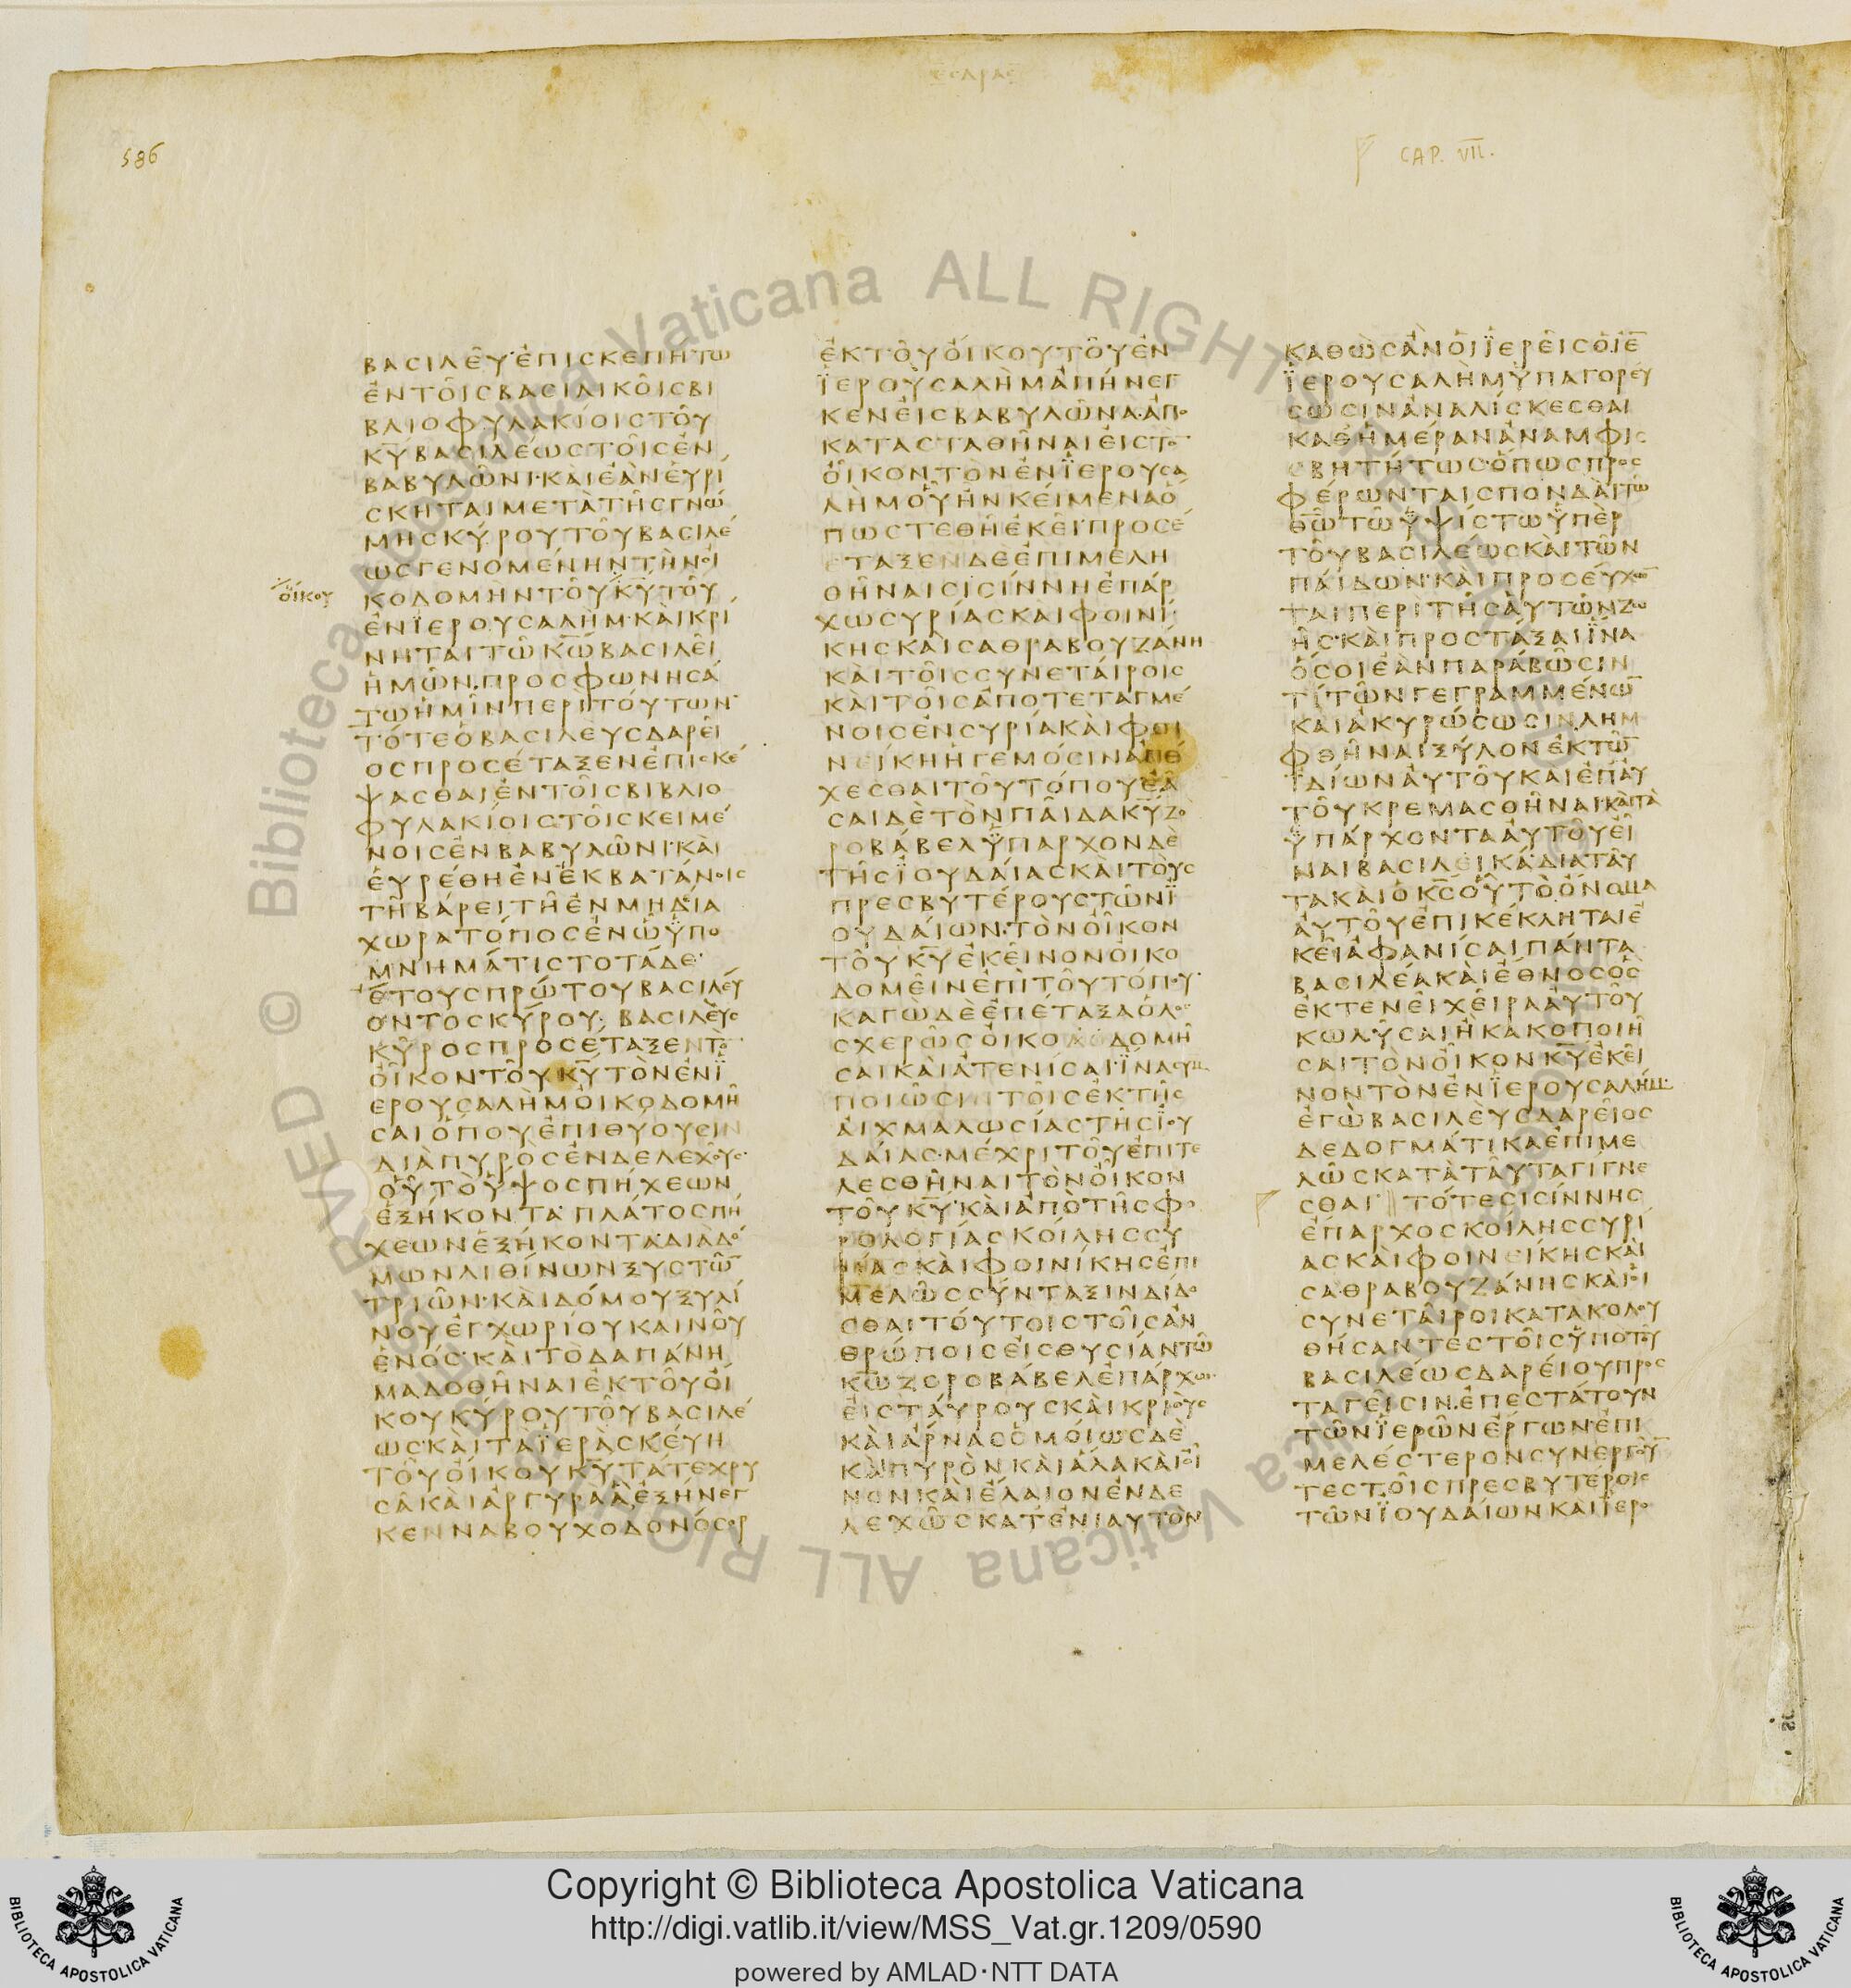 ΕΣΔΡΑΣ
586
CAP. VII.
ΒΑϹΙΛΕΥ·ΕΠΙϹΚΕΠΗΤω
ΕΝΤΟΙϹΒΑϹΙΛΙΚΟΙϹΒΙ
ΒΛΙΟΦΥΛΑΚΙΟΙϹΤΟΥ
ΚΥΒΑϹΙΛΕωϹΤΟΙϹΕΝ
ΒΑΒΥΛωΝΙ·ΚΑΙΕΑΝΕΥΡΙ
ϹΚΗΤΑΙΜΕΤΑΤΗϹΓΝω
ΜΗϹΚΥΡΟΥΤΟΥΒΑϹΙΛΕ
ωϹΓΕΝΟΜΕΝΗΝΤΗΝΟΙ
ΚΟΔΟΜΗΝΤΟΥΚΥΤΟΥ
οἴκου
ΕΝΪΕΡΟΥϹΑΛΗΜ·ΚΑΙΚΡΙ
ΝΗΤΑΙΤωΚωΒΑϹΙΛΕΙ
ΗΜωΝ·ΠΡΟϹΦωΝΗϹΑ
ΤωΗΜΙΝΠΕΡΙΤΟΥΤωΝ
ΤΟΤΕΟΒΑϹΙΛΕΥϹΔΑΡΕΙ
ΟϹΠΡΟϹΕΤΑΞΕΝΕΠΙϹΚΕ
ΨΑϹΘΑΙΕΝΤΟΙϹΒΙΒΛΙΟ
ΦΥΛΑΚΙΟΙϹΤΟΙϹΚΕΙΜΕ
ΝΟΙϹΕΝΒΑΒΥΛωΝΙ·ΚΑΙ
ΕΥΡΕΘΗΕΝΕΚΒΑΤΑΝΟΙϹ
ΤΗΒΑΡΕΙΤΗΕΝΜΗΔΙΑ
ΧωΡΑΤΟΠΟϹΕΝωΫΠΟ
ΜΝΗΜΑΤΙϹΤΟΤΑΔΕ·
ΕΤΟΥϹΠΡωΤΟΥΒΑϹΙΛΕΥ
ΟΝΤΟϹΚΥΡΟΥ· ΒΑϹΙΛΕΥϹ
ΚΥΡΟϹΠΡΟϹΕΤΑΞΕΝΤΟ
ΟΙΚΟΝΤΟΥΚΥΤΟΝΕΝΪ
ΕΡΟΥϹΑΛΗΜΟΙΚΟΔΟΜΗ
ϹΑΙΟΠΟΥΕΠΙΘΥΟΥϹΙΝ
ΔΙΑΠΥΡΟϹΕΝΔΕΛΕΧΟΥϹ·
ΟΥΤΟΫΨΟϹΠΗΧΕωΝ
ΕΞΗΚΟΝΤΑ·ΠΛΑΤΟϹΠΗ
ΧΕωΝΕΞΗΚΟΝΤΑΔΙΑΔΟ
ΜωΝΛΙΘΙΝωΝΞΥϹΤω̅
ΤΡΙωΝ·ΚΑΙΔΟΜΟΥΞΥΛΙ
ΝΟΥΕΓΧωΡΙΟΥΚΑΙΝΟΥ
ΕΝΟϹ·ΚΑΙΤΟΔΑΠΑΝΗ
ΜΑΔΟΘΗΝΑΙΕΚΤΟΥΟΙ
ΚΟΥΚΥΡΟΥΤΟΥΒΑϹΙΛΕ
ωϹ·ΚΑΙΤΑΪΕΡΑϹΚΕΥΗ
ΤΟΥΟΙΚΟΥΚΥΤΑΤΕΧΡΥ
ϹΑΚΑΙΑΡΓΥΡΑΑΕΞΗΝΕΓ
ΚΕΝΝΑΒΟΥΧΟΔΟΝΟϹΟΡ
ΕΚΤΟΥΟΙΚΟΥΤΟΥΕΝ
ΪΕΡΟΥϹΑΛΗΜΑΠΗΝΕΓ
ΚΕΝΕΙϹΒΑΒΥΛωΝΑ·ΑΠΟ
ΚΑΤΑϹΤΑΘΗΝΑΙΕΙϹΤΟ
ΟΙΚΟΝΤΟΝΕΝΪΕΡΟΥϹΑ
ΛΗΜΟΥΗΝΚΕΙΜΕΝΑΟ
ΠωϹΤΕΘΗΕΚΕΙ·ΠΡΟϹΕ
ΤΑΞΕΝΔΕΕΠΙΜΕΛΗ
ΘΗΝΑΙϹΙϹΙΝΝΗΕΠΑΡ
ΧωϹΥΡΙΑϹΚΑΙΦΟΙΝΙ
ΚΗϹΚΑΙϹΑΘΡΑΒΟΥΖΑΝΗ
ΚΑΙΤΟΙϹϹΥΝΕΤΑΙΡΟΙϹ
ΚΑΙΤΟΙϹΑΠΟΤΕΤΑΓΜΕ
ΝΟΙϹΕΝϹΥΡΙΑΚΑΙΦΟΙ
ΝΕΙΚΗΗΓΕΜΟϹΙΝΑΠΕ
ΧΕϹΘΑΙΤΟΥΤΟΠΟΥΕΑ
ϹΑΙΔΕΤΟΝΠΑΙΔΑΚΥΖΟ
ΡΟΒΑΒΕΛΫΠΑΡΧΟΝΔΕ
ΤΗϹΪΟΥΔΑΙΑϹΚΑΙΤΟΥϹ
ΠΡΕϹΒΥΤΕΡΟΥϹΤωΝΪ
ΟΥΔΑΙωΝ·ΤΟΝΟΙΚΟΝ
ΤΟΥΚΥΕΚΕΙΝΟΝΟΙΚΟ
ΔΟΜΕΙΝΕΠΙΤΟΥΤΟΠΟΥ·
ΚΑΓωΔΕΕΠΕΤΑΞΑΟΛΟ
ϹΧΕΡωϹΟΙΚΟΔΟΜΗ
ϹΑΙΚΑΙΑΤΕΝΙϹΑΙ·ΪΝΑϹΥΜ
ΠΟΙωϹΙΝΤΟΙϹΕΚΤΗϹ
ΑΙΧΜΑΛωϹΙΑϹΤΗϹΪΟΥ
ΔΑΙΑϹ·ΜΕΧΡΙΤΟΥΕΠΙΤΕ
ΛΕϹΘΗΝΑΙΤΟΝΟΙΚΟΝ
ΤΟΥΚΥ·ΚΑΙΑΠΟΤΗϹΦΟ
ΡΟΛΟΓΙΑϹΚΟΙΛΗϹϹΥ
ΡΙΑϹΚΑΙΦΟΙΝΙΚΗϹΕΠΙ
ΜΕΛωϹϹΥΝΤΑΞΙΝΔΙΔΟ
ϹΘΑΙΤΟΥΤΟΙϹΤΟΙϹΑΝ
ΘΡωΠΟΙϹΕΙϹΘΥϹΙΑΝΤω
ΚωΖΟΡΟΒΑΒΕΛΕΠΑΡΧωι·
ΕΙϹΤΑΥΡΟΥϹΚΑΙΚΡΙΟΥϹ
ΚΑΙΑΡΝΑϹΟΜΟΙωϹΔΕ
ΚΑΙΠΥΡΟΝΚΑΙΑΛΑΚΑΙΟΙ
ΝΟΝΚΑΙΕΛΑΙΟΝΕΝΔΕ
ΛΕΧωϹΚΑΤΕΝΙΑΥΤΟΝ
ΚΑΘωϹΑΝΟΙΪΕΡΕΙϹΟΙΕ̅
ΪΕΡΟΥϹΑΛΗΜΫΠΑΓΟΡΕΥ
ϹωϹΙΝΑΝΑΛΙϹΚΕϹΘΑΙ
ΚΑΘΗΜΕΡΑΝΑΝΑΜΦΙϹ
ΒΗΤΗΤωϹ·ΟΠωϹΠΡΟϹ
ΦΕΡωΝΤΑΙϹΠΟΝΔΑΙΤω
ΘωΤωΫΨΙϹΤωΫΠΕΡ
ΤΟΥΒΑϹΙΛΕωϹΚΑΙΤωΝ
ΠΑΙΔωΝ·ΚΑΙΠΡΟϹΕΥΧΟ̅
ΤΑΙΠΕΡΙΤΗϹΑΥΤωΝΖω
ΗϹ·ΚΑΙΠΡΟϹΤΑΞΑΙΪΝΑ
ΟϹΟΙΕΑΝΠΑΡΑΒωϹΙΝ
ΤΙΤωΝΓΕΓΡΑΜΜΕΝω̅
ΚΑΙΑΚΥΡωϹωϹΙΝΛΗΜ
ΦΘΗΝΑΙΞΥΛΟΝΕΚΤω̅
ΪΔΙωΝΑΥΤΟΥΚΑΙΕΠΑΥ
ΤΟΥΚΡΕΜΑϹΘΗΝΑΙ·ΚΑΙΤΑ
ΫΠΑΡΧΟΝΤΑΑΥΤΟΥΕΙ
ΝΑΙΒΑϹΙΛΕΙΚΑ·ΔΙΑΤΑΥ
ΤΑΚΑΙΟΚϹΟΥΤΟΟΝΟΜΑ
ΑΥΤΟΥΕΠΙΚΕΚΛΗΤΑΙΕ
ΚΕΙΑΦΑΝΙϹΑΙΠΑΝΤΑ
ΒΑϹΙΛΕΑΚΑΙΕΘΝΟϹΟϹ
ΕΚΤΕΝΕΙΧΕΙΡΑΑΥΤΟΥ
ΚωΛΥϹΑΙΗΚΑΚΟΠΟΙΗ
ϹΑΙΤΟΝΟΙΚΟΝΚΥΕΚΕΙ
ΝΟΝΤΟΝΕΝΪΕΡΟΥϹΑΛΗΜ·
ΕΓωΒΑϹΙΛΕΥϹΔΑΡΕΙΟϹ
ΔΕΔΟΓΜΑΤΙΚΑΕΠΙΜΕ
ΛωϹΚΑΤΑΤΑΥΤΑΓΙΓΝΕ
ϹΘΑΙ· ΤΟΤΕϹΙϹΙΝΝΗϹ
ΕΠΑΡΧΟϹΚΟΙΛΗϹϹΥΡΙ
ΑϹΚΑΙΦΟΙΝΕΙΚΗϹΚΑΙ
ϹΑΘΡΑΒΟΥΖΑΝΗϹΚΑΙΟΙ
ϹΥΝΕΤΑΙΡΟΙΚΑΤΑΚΟΛΟΥ
ΘΗϹΑΝΤΕϹΤΟΙϹΫΠΟΤΟΥ
ΒΑϹΙΛΕωϹΔΑΡΕΙΟΥΠΡΟϹ
ΤΑΓΕΙϹΙΝ·ΕΠΕϹΤΑΤΟΥΝ
ΤωΝΪΕΡωΝΕΡΓωΝ·ΕΠΙ
ΜΕΛΕϹΤΕΡΟΝϹΥΝΕΡΓΟΥ̅
ΤΕϹΤΟΙϹΠΡΕϹΒΥΤΕΡΟΙϹ
ΤωΝΪΟΥΔΑΙωΝΚΑΙΪΕΡΟ
Copyright © Biblioteca Apostolica Vaticana
http://digi.vatlib.it/view/MSS_Vat.gr.1209/0590
powered by AMLAD·NTT DATA
BIBLIOTECA APOSTOLICA VATICANA
BIBLIOTECA APOSTOLICA VATICANA
© Biblioteca Apostolica Vaticana ALL RIGHTS RESERVED